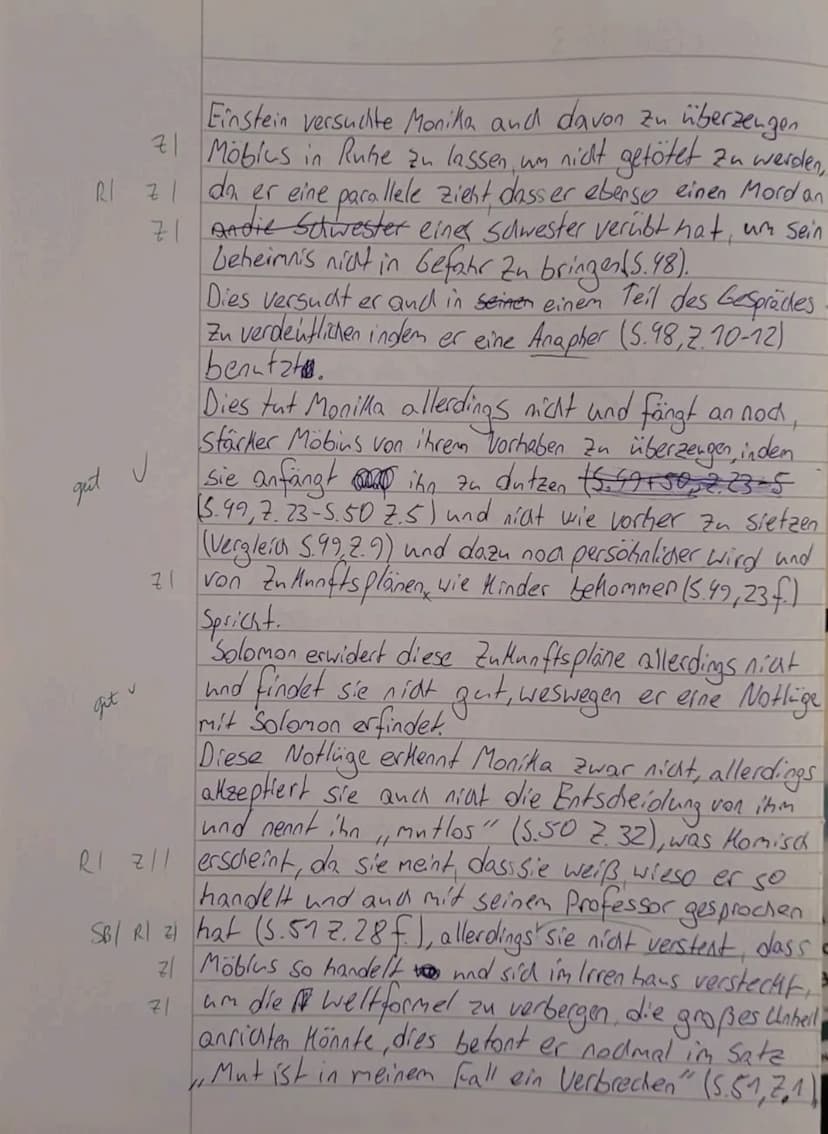 Einstein versuchte Monika auch davon zu überzeugen
Z| Möbius in Ruhe zu lassen, um nicht getötet zu werden,
R| Z| da er eine parallele zieht, dass er ebenso einen Mord an
Z| an die Schwester eines Schwester verübt hat, um sein
Geheimnis nicht in Gefahr zu bringen (S.48).
Dies versucht er auch in seinen einem Teil des Gespräches
zu verdeutlichen indem er eine Anapher (S.48, Z.10-12)
benutzt.
Dies tut Monika allerdings nicht und fängt an noch,
stärker Möbius von ihrem Vorhaben zu überzeugen, indem
gut ✓ sie anfängt ihn zu dutzen (S.49+50, Z.23-5
(S.49, Z.23-S.50 Z.5) und nicht wie vorher zu sietzen
(Vergleich S.49, Z.9) und dazu noch persöhnlicher wird und
Z| von Zukunftsplänen, wie Kinder bekommen (S.49, 23f.)
Spricht.
Solomon erwidert diese Zukunftspläne allerdings nicht
gut ✓ und findet sie nicht gut, weswegen er eine Notlüge
mit Solomon erfindet.
Diese Notlüge erkennt Monika zwar nicht, allerdings
akzeptiert sie auch nicht die Entscheidung von ihm
und nennt ihn „mutlos" (S.50 Z.32), was Komisch
R| Z|| erscheint, da sie meint, dass sie weiß, wieso er so
handelt und auch mit seinem Professor gesprochen
SB| R| Z| hat (S.51 Z.28f.), allerdings sie nicht versteht, dass
Z| Möbius so handelt und sich im Irrenhaus versteckt,
Z| um die Weltformel zu verbergen, die großes Unheil
anrichten könnte, dies betont er nochmal im Satz
„Mut ist in meinem Fall ein Verbrechen" (S.51, Z.1)